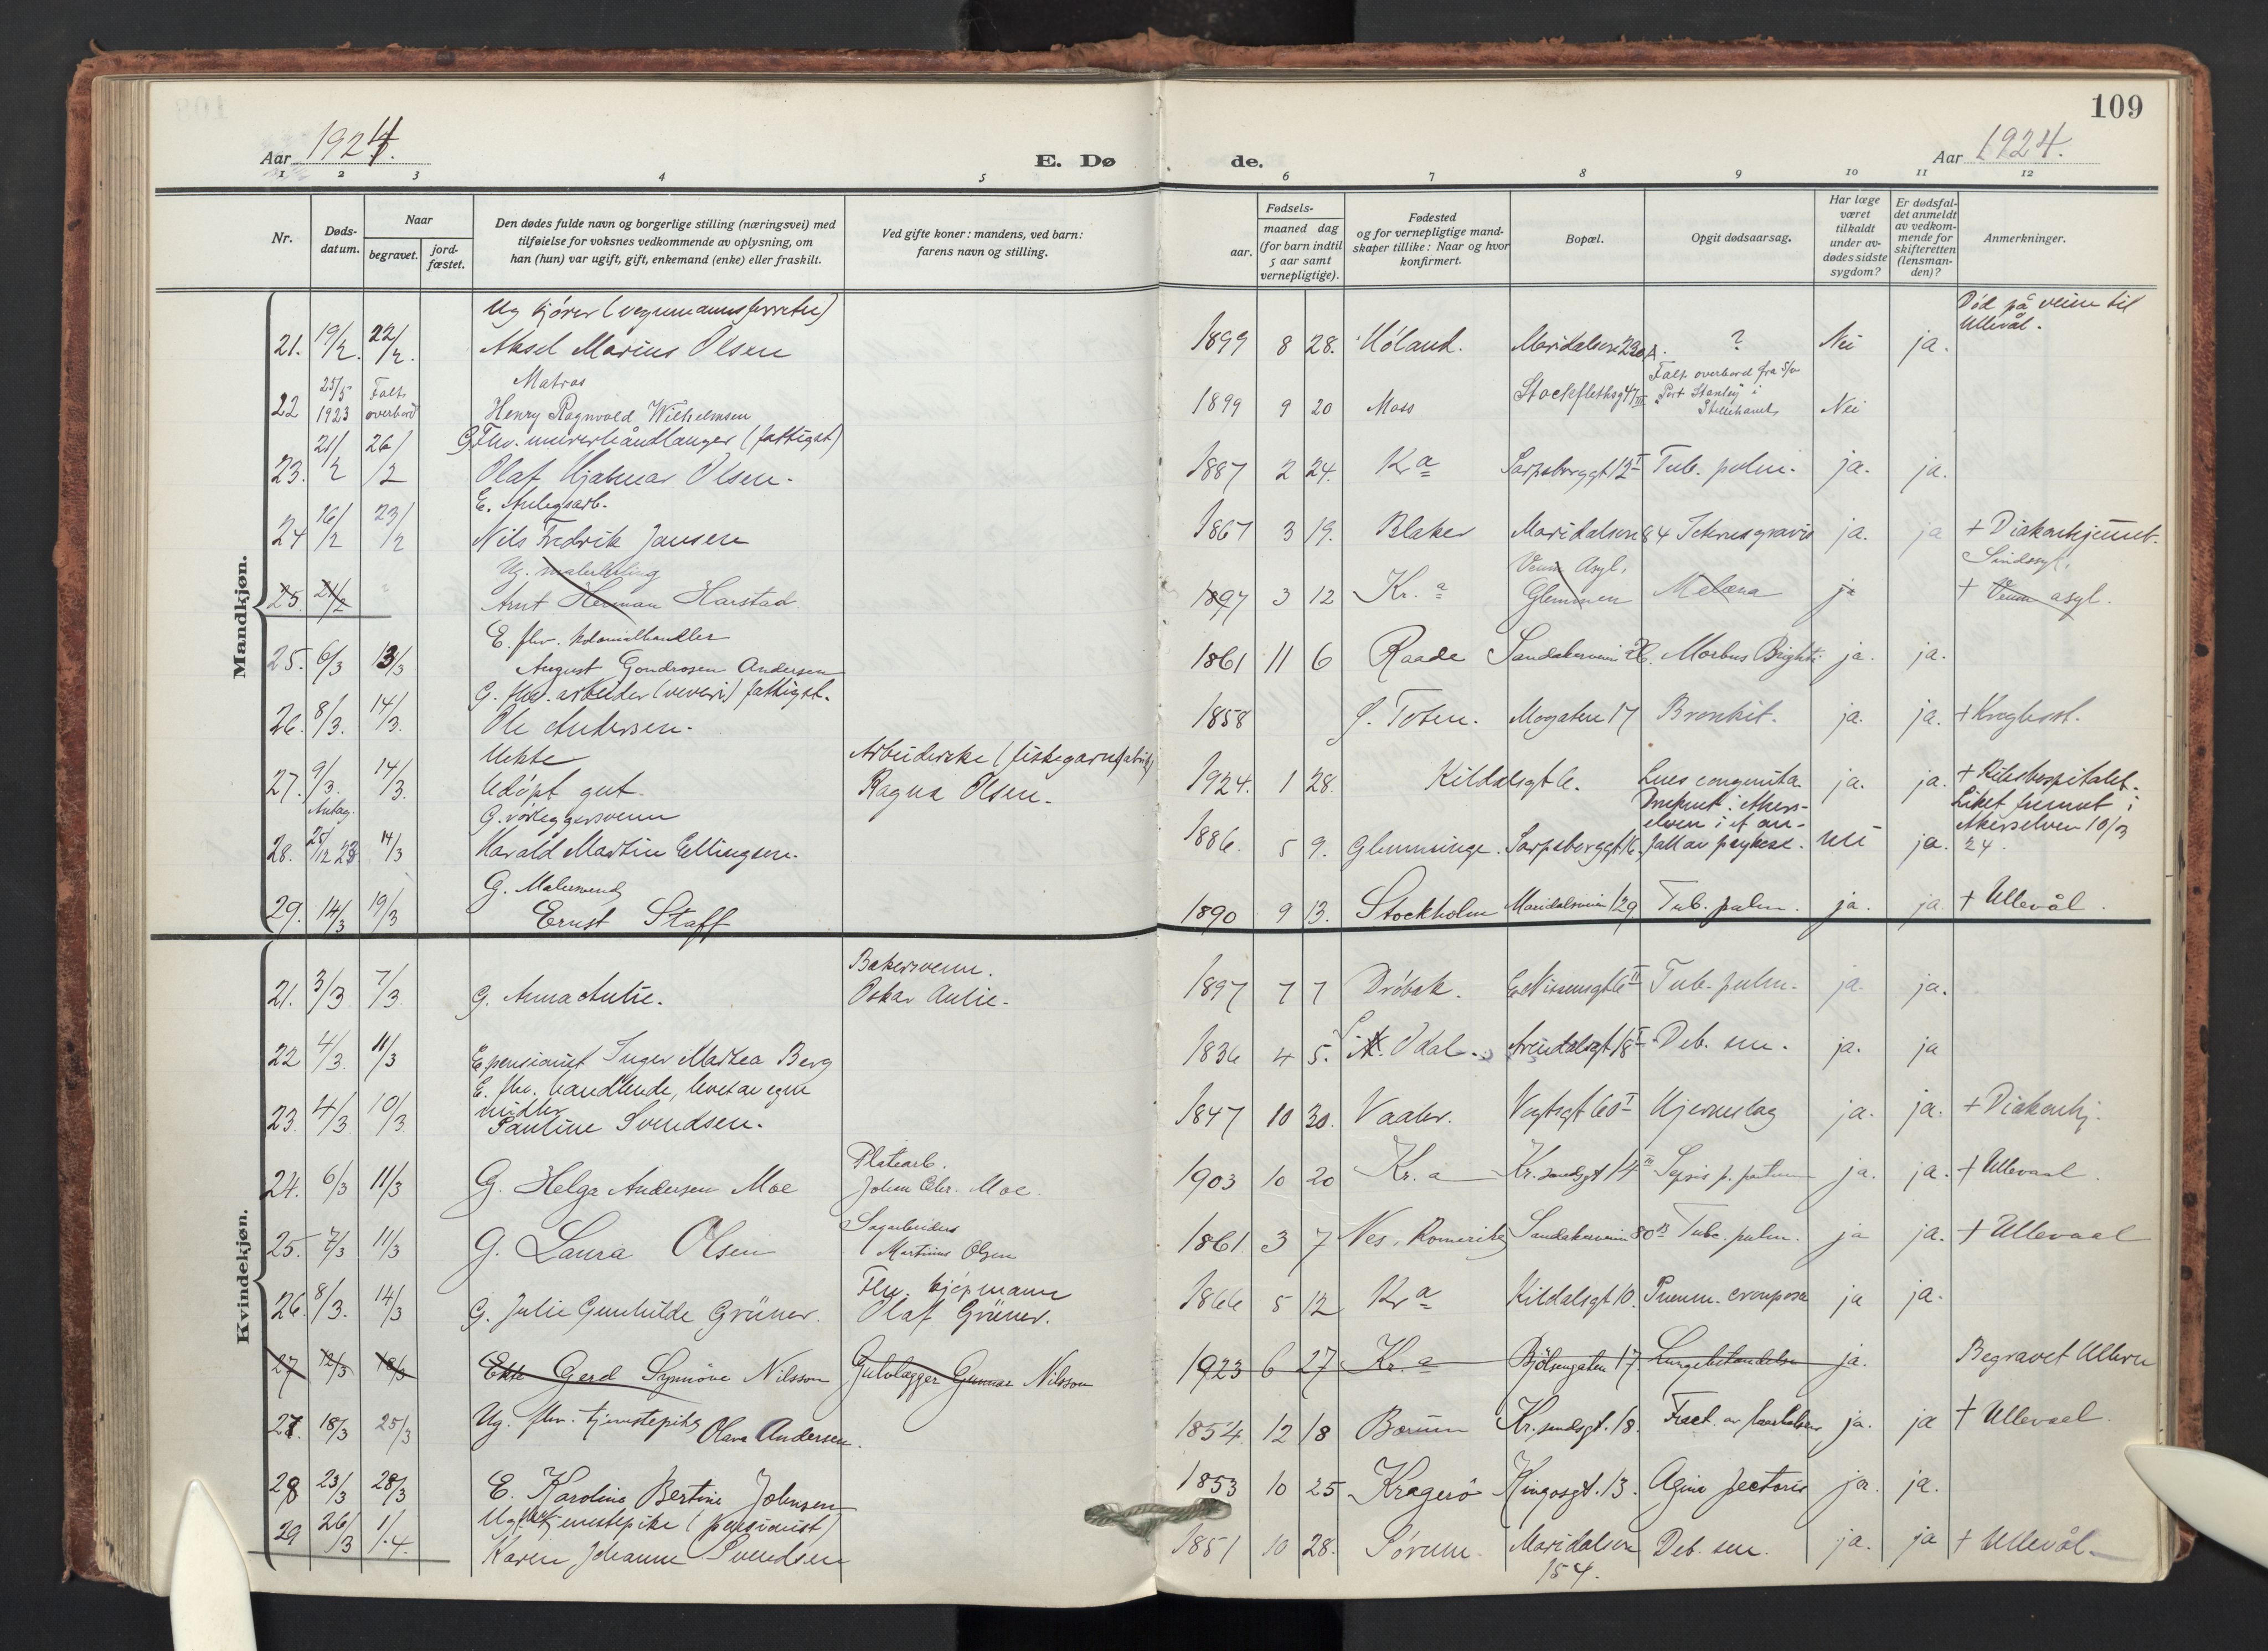 109
Aar 1924.
E. Dø
de.
Aar 1924.
1 2 3 4 5 6 7 8 9 10 11 12
Nr.
Døds-
datum.
Naar
begravet.
jord-
fæstet.
Den dødes fulde navn og borgerlige stilling (næringsvei) med
tilføielse for voksnes vedkommende av oplysning, om
han (hun) var ugift, gift, enkemand (enke) eller fraskilt.
Ved gifte koner: mandens, ved barn:
farens navn og stilling.
Fødsels-
aar.
maaned dag
(for barn indtil
5 aar samt
vernepligtige).
Fødested
og for vernepligtige mand-
skaper tillike: Naar og hvor
konfirmert.
Bopæl.
Opgit dødsaarsag.
Har læge
været
tilkaldt
under av-
dødes sidste
sygdom?
Er dødsfal-
det anmeldt
av vedkom-
mende for
skifteretten
(lensman-
den)?
Anmerkninger.
Mandkjøn.
Ug kjører
Død på veien til
Ullevål.
21. 19/2. 22/2. Aksel Marius Olsen 1899 8 28. Høland. Maridalsvn 230A. ? Nei ja.
Matros
22 25/5 1923 Falt overbord Henry Ragnvald Wilhelmsen 1899 9 20 Moss Stockflethsg 47 III Falt overbord fra S/S "Port Stanley" i Stillehavet Nei
G. Fhv. murerhåndlanger (fattigst)
23. 21/2 26/2 Olaf Hjalmar Olsen. 1887 2 24. Kr a Sarpsborggt 12 I Tub. pulm. ja. ja.
E. Anlegsarb.
24 16/2 23/2 Nils Fredrik Jansen 1867 3 19. Blaker Maridalsvn 84 Icterus gravis ja. ja + Diakonhjemmet.
Ug. malerlærling
Veum Asyl, Sindssyk,
25. 21/2 " Arnt Herman Harstad. 1897 3 12 Kr. a Glemmen Melæna ja + Veum asyl.
E. fhv. kolonialhandler
25. 6/3 13/3 August Gondrosen Andersen 1861 11 6 Raade Sandakerveien Morbus Brighti ja. ja.
G. fhv. arbeider (veveri) fattigst.
26. 8/3. 14/3. Ole Andersen. 1858 Toten. Mogaten 17 Bronkit. ja. ja. + Kroghsst.
Uekte Arbeiderske (fiskegarnfabrik)
27. 9/3. 14/3. Udøpt gut. Ragna Olsen. 1924. 1 28. Kildalsgt 6. Lues congenita. ja. ja. + Rikshospitalet.
Antag. G. rørleggersvenn
Druknet i Akers-
elven i et an-
Liket funnet i
Akerselven 10/3
28. 25/12 23 14/3 Harald Martin Ellingsen. 1886. 5 9. Glemminge. Sarpsborggt 16. fall av psykose. nei ja. 24.
G. Malersvend
29. 14/3 19/3 Ernst Staff 1890 9 13. Stockholm Maridalsveien 129 Tub. pulm. ja. ja. + Ullevål.
Kvindekjøn.
Bakersvenn.
21. 3/3 7/3 G. Anna Aulie. Oskar Aulie. 1897 7 7 Drøbak. E Nissensgt 6 II Tub. pulm. ja. ja.
22 4/3. 11/3 E pensionist Inger Mathea Berg 1836 4 5. Odal. Arendalsgt 18 I Deb. sen. ja. ja
E. fhv. handlende, levet av egne
midler
23. 4/3 10/3 Pauline Svendsen. 1847 10 30. Vaaler. Vogtsgt 60 I Hjerneslag ja. ja. + Diakonhj.
Platearb.
24. 6/3 11/3 G. Helga Andersen Moe Johan Chr. Moe. 1903 10 20 Kr. a Kr.sandsgt 14 III Sepsis p. partum ja. ja. + Ullevaal.
Sagarbeider
25. 7/3 11/3 G. Laura Olsen Martinius Olsen 1861 3 7 Nes, Romerike Sandakerveien 80 B Tubc. pulm. ja ja. + Ullevaal
Fhv. kjøpmann
26. 8/3. 14/3 G. Julie Gunhilde Grüner. Olaf Grüner. 1866 5 12 Kr a Kildalsgt 10. Pneum. crouposa ja ja.
27 12/3 18/3 Ekte Gerd Synnöve Nilsson Gulvlægger Gunnar Nilsson 1923 6 27 Kr. a Bjølsengaten 17. Lungebetændelse ja. Begravet Ullern
27. 18/3 25/3 Ug. fhv. tjenestepike Olava Andersen. 1854. 12 18 Bærum Kr.sandsgt. 18. Fract. av laarhalsen ja. ja + Ullevaal.
28 23/3 28/3 E. Karoline Bertine Johnsen 1853 10 25 Kragerø Kingosgt. 13. Agina pectoris ja. ja.
Ug. fhv tjenestepike (pensionist)
29 26/3 1/4. Karen Johanne Svendsen 1851 10 28. Sørum. Maridalsvn 154. Deb. sen. ja. ja + Ullevål.